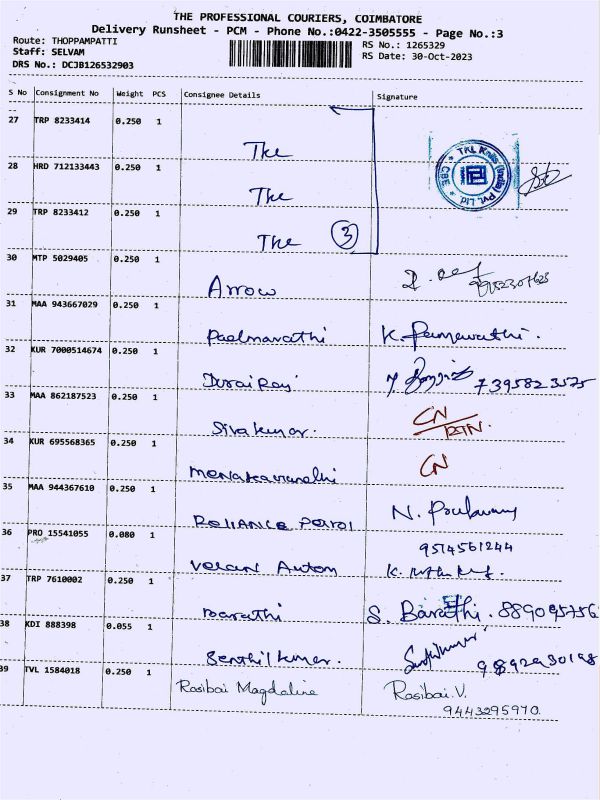 THE PROFESSIONAL COURIERS, COIMBATORE
Delivery Runsheet - PCM - Phone No.:0422-3505555 - Page No.:3
Route: THOPPAMPATTI
Staff: SELVAM
DRS No.: DCJB126532903
RS No.: 1265329
RS Date: 30-Oct-2023
S No Consignment No Weight PCS Consignee Details Signature
27 TRP 8233414 0.250 1 The
28 HRD 712133443 0.250 1 The
TKL Knits (India) Pvt. Ltd. * CBE *
29 TRP 8233412 0.250 1 The 3
30 MTP 5029405 0.250 1 Arrow
31 MAA 943667029 0.250 1 Padmavathi K. Padmavathi.
32 KUR 7000514674 0.250 1 Durai Raj 7395823525
33 MAA 862187523 0.250 1 Sivakumar. CN/RTN.
34 KUR 695568365 0.250 1 CN
35 MAA 944367610 0.250 1 Reliance Petrol N.
36 PRO 15541055 0.080 1 Velan Autom 9514561244
37 TRP 7610002 0.250 1 Barathi S. Barathi.
38 KDI 888398 0.055 1 Senthilkumar.
39 TVL 1584018 0.250 1 Rosibai Magdaline Rosibai.V.
9443295970.